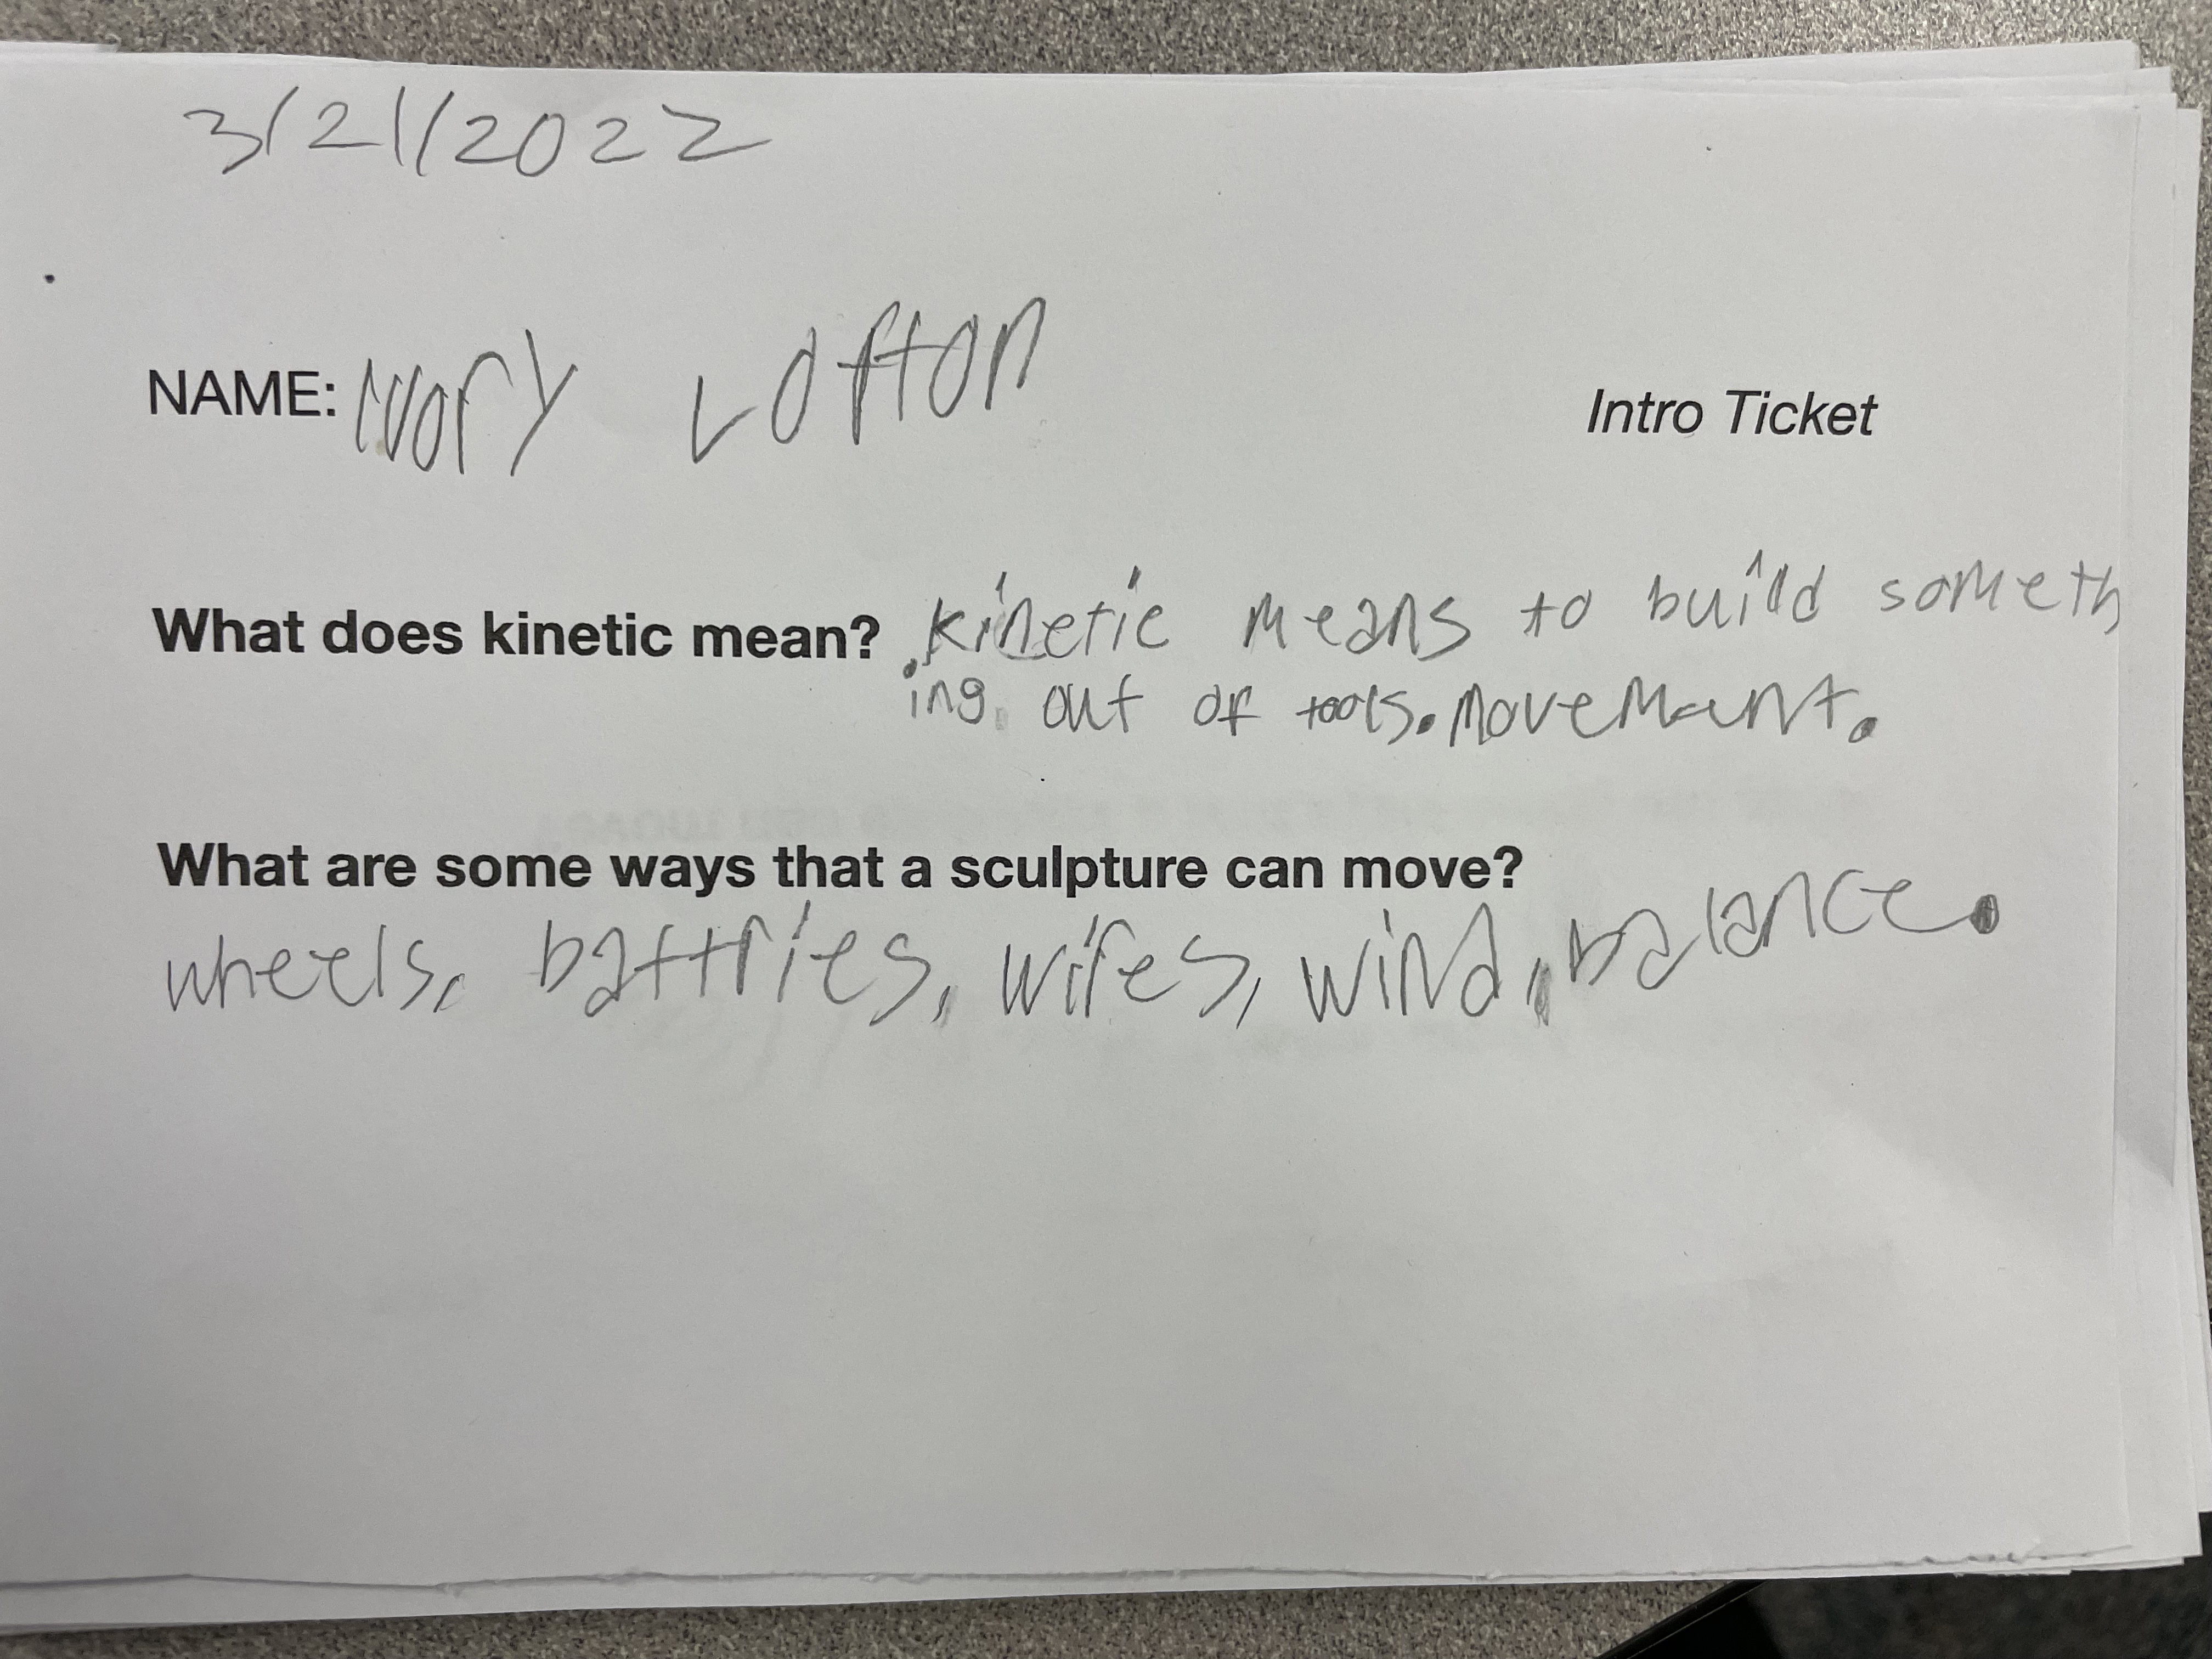 3/21/2022
NAME: Ivory Lofton
Intro Ticket
What does kinetic mean? kinetic means to build someth
ing out of tools. movemant.
What are some ways that a sculpture can move?
wheels, battries, wires, wind, balance.